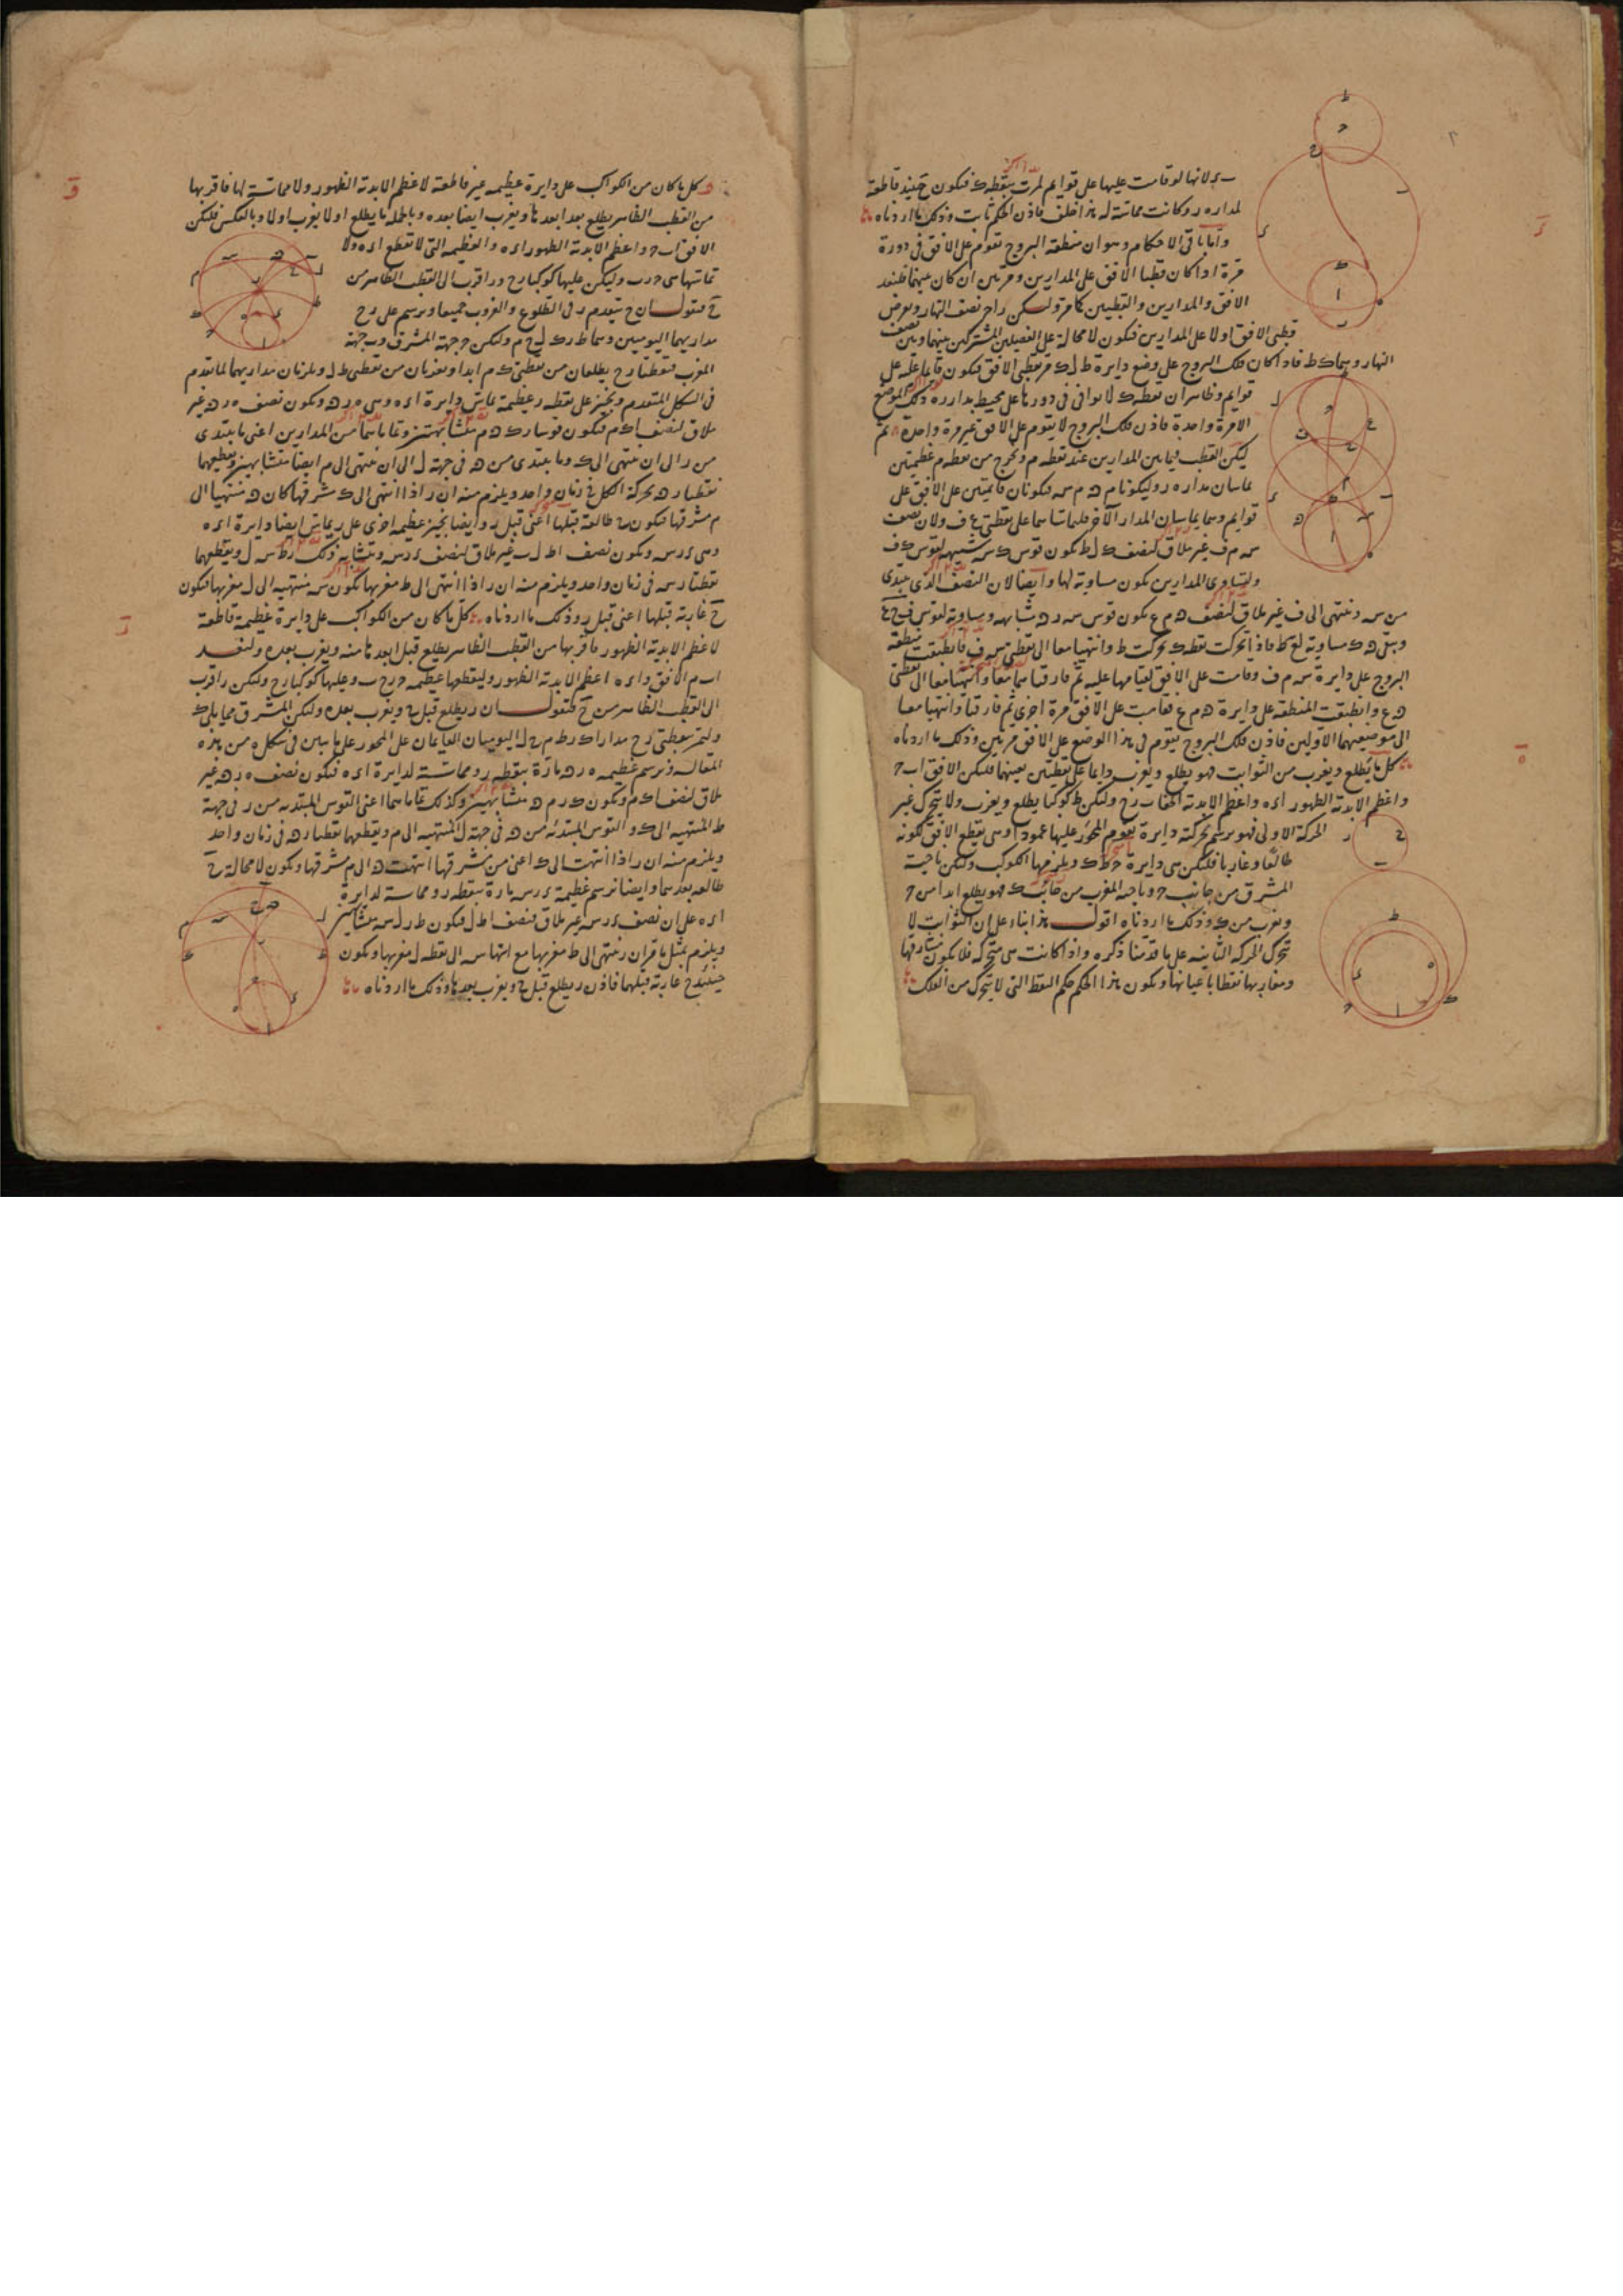 لانها لو قامت عليها على قوايم لمرت بنقطة ك فيكون حينئذ قاطعة
لمداره ر وكانت مماسة له هذا خلف فاذن الحكم ثابت وذلك ما اردناه
واما باقى الاحكام وهو ان منطقة البروج تقوم على الافق فى دورة
مرة اذا كان قطبا الافق على المدارين ومرتين ان كان بينهما فنعد
الافق والمدارين والقطبين كما مر ولكن ا ح نصف النهار ونعرض
قطبى الافق اولا على المدارين فيكون لا محالة على الفصلين المشتركين بينهما وبين نصف
النهار وهما ك ط فاذا كان فلك البروج على وضع دايرة ط ل ك مر بقطبى الافق فيكون قايما عليه على
قوايم وظاهر ان نقطة ك لا توافى فى دورها على محيط مدار ره ذلك الموضع
الا مرة واحدة فاذن فلك البروج لا يقوم على الافق غير مرة واحدة ثم
ليكن القطب فيما بين المدارين عند نقطة م ونخرج من نقطة م عظيمتين
تماسان مداره ر وليكونا م ه م س فيكونان قايمتين على الافق على
قوايم وهما يماسان المدار الاخر فليماساهما على نقطتى ع ف ولان نصف
س م ف غير ملاق لنصف ك ل ط يكون قوس ك س شبيهة لقوس ط ف
ولتساوى المدارين يكون مساوية لها وايضا لان النصف الذى يبتدى
من س وينتهى الى ف غير ملاق لنصف ه م ع يكون قوس س ر ه شابهه ومساوية لقوس ف ح ع
ويبقى ه ك مساوية لع ط فاذا تحركت نقطة ك تحركت ط وانتهيا معا الى نقطتى س ف فانطبقت منطقة
البروج على دايرة س م ف وقامت على الافق لقيامها عليه ثم فارقتاهما معا وانتهتا معا الى نقطتى
ه ع وانطبقت المنطقة على دايرة ه م ع فقامت على الافق مرة اخرى ثم فارقتا وانتهيا معا
الى موضعيهما الاولين فاذن فلك البروج يقوم فى هذا الوضع على الافق مرتين وذلك ما اردناه
كل ما يطلع ويغرب من الثوابت فهو يطلع ويغرب دايما على نقطتين بعينهما فليكن الافق ا ب ح
واعظم الابدية الظهور ا ء ه واعظم الابدية الخفاء ب ر ح وليكن ط كوكبا يطلع ويغرب ولا يتحرك غير
الحركة الاولى فهو يرسم بحركته دايرة يقوم المحور عليها عمودا وهى يقطع الافق لكونه
طالعا وغاربا فليكن هى دايرة ح ط ك ويلزمها الكوكب وليكن ناحية
المشرق من جانب ح وناحية المغرب من جانب ك فهو يطلع ابدا من ح
ويغرب من ك وذلك ما اردناه اقول هذا بناء على ان الثوابت لا
تتحرك الحركة الثانية على ما قدمنا ذكره واذا كانت هى متحركة فلا يكون مشارقها
ومغاربها نقطا باعيانها ويكون هذا الحكم حكم النقط التى لا يتحرك من الفلك
كل ما كان من الكواكب على دايرة عظيمة غير قاطعة لاعظم الابدية الظهور ولا مماسة لها فاقربها
من القطب الظاهر يطلع بعد ابعدها ويغرب ايضا بعده وبالجملة ما يطلع اولا يغرب اولا وبالعكس فليكن
الافق ا ب ح واعظم الابدية الظهور ا ء ه والعظيمة التى لا تقطع ا ء ه ولا
تماسها هى ح ر ب وليكن عليها كوكبا ر ح و ر اقرب الى القطب الظاهر من
ح فنقول ان ح يتقدم ر فى الطلوع والغروب جميعا ونرسم على ر ح
مداريهما اليوميين وهما ط ر ك ل ح م وليكن ح جهة المشرق و ب جهة
المغرب فنقطتا ر ح يطلعان من نقطتى ك م ابدا ويغربان من نقطتى ط ل ويلزمان مداريهما لما تقدم
فى الشكل المتقدم ونجيز على نقطة ر عظيمة تماس دايرة ا ء ه وهى ه ر ه ويكون نصف ه ر ه غير
ملاق لنصف ا ك م فيكون قوسا ر ك ه م متشابهتين وتماماهما من المدارين اعنى ما يبتدى
من ر الى ان ينتهى الى ك وما يبتدى من ه فى جهة ل الى ان ينتهى الى م ايضا متشابهين ويقطعهما
نقطتا ر ه بحركة الكل فى زمان واحد ويلزم منه ان ر اذا انتهى الى ك مشرقها كان ه منتهيا الى
م مشرقها فيكون ح طالعة قبلها اعنى قبل ر وايضا نجيز عظيمة اخرى على ر يماس ايضا دايرة ا ء ه
وهى ء ر س ويكون نصف ا ط ل ب غير ملاق لنصف ء ر س ويتشابه لذلك ر ط س ل ويقطعهما
نقطتا ر س فى زمان واحد ويلزم منه ان ر اذا انتهى الى ط مغربها يكون س منتهية الى ل مغربها فيكون
ح غاربة قبلها اعنى قبل ر وذلك ما اردناه كل ما كان من الكواكب على دايرة عظيمة قاطعة
لاعظم الابدية الظهور فاقربها من القطب الظاهر يطلع قبل ابعدها منه ويغرب بعده ولنعد
ا ب م الافق و ا ء ه اعظم الابدية الظهور وليقطعها عظيمة ح ر ح ب وعليها كوكبا ر ح وليكن ر اقرب
الى القطب الظاهر من ح فنقول ان ر يطلع قبل ح ويغرب بعده وليكن المشرق مما يلى ك
وليمر بنقطتى ر ح مدارا ك ر ط م ح ل اليوميان القايمان على المحور على ما بين فى شكل ه من هذه
المقالة ونرسم عظيمة ه ر ه مارة بنقطة ر ومماسة لدايرة ا ء ه فيكون نصف ه ر ه غير
ملاق لنصف ا ك م ويكون ك ر م ه متشابهين وكذلك تماماهما اعنى القوس المبتدية من ر فى جهة
ط المنتهية الى ك والقوس المبتدئة من ه فى جهة ل المنتهية الى م ويقطعهما نقطتا ر ه فى زمان واحد
ويلزم منه ان ر اذا انتهت الى ك اعنى من مشرقها انتهت ه الى م مشرقها ويكون لا محالة ح
طالعة بعدهما وايضا نرسم عظيمة ء ر س مارة بنقطة ر ومماسة لدايرة
ا ء ه على ان نصف ء ر س غير ملاق لنصف ا ط ل فيكون ط ر ل س متشابهين
ويلزم بمثل ما مر ان ر ينتهى الى ط مغربها مع انتهاء س الى نقطة ل مغربها ويكون
حينئذ ح غاربة قبلهما فاذن ر يطلع قبل ح ويغرب بعدها وذلك ما اردناه